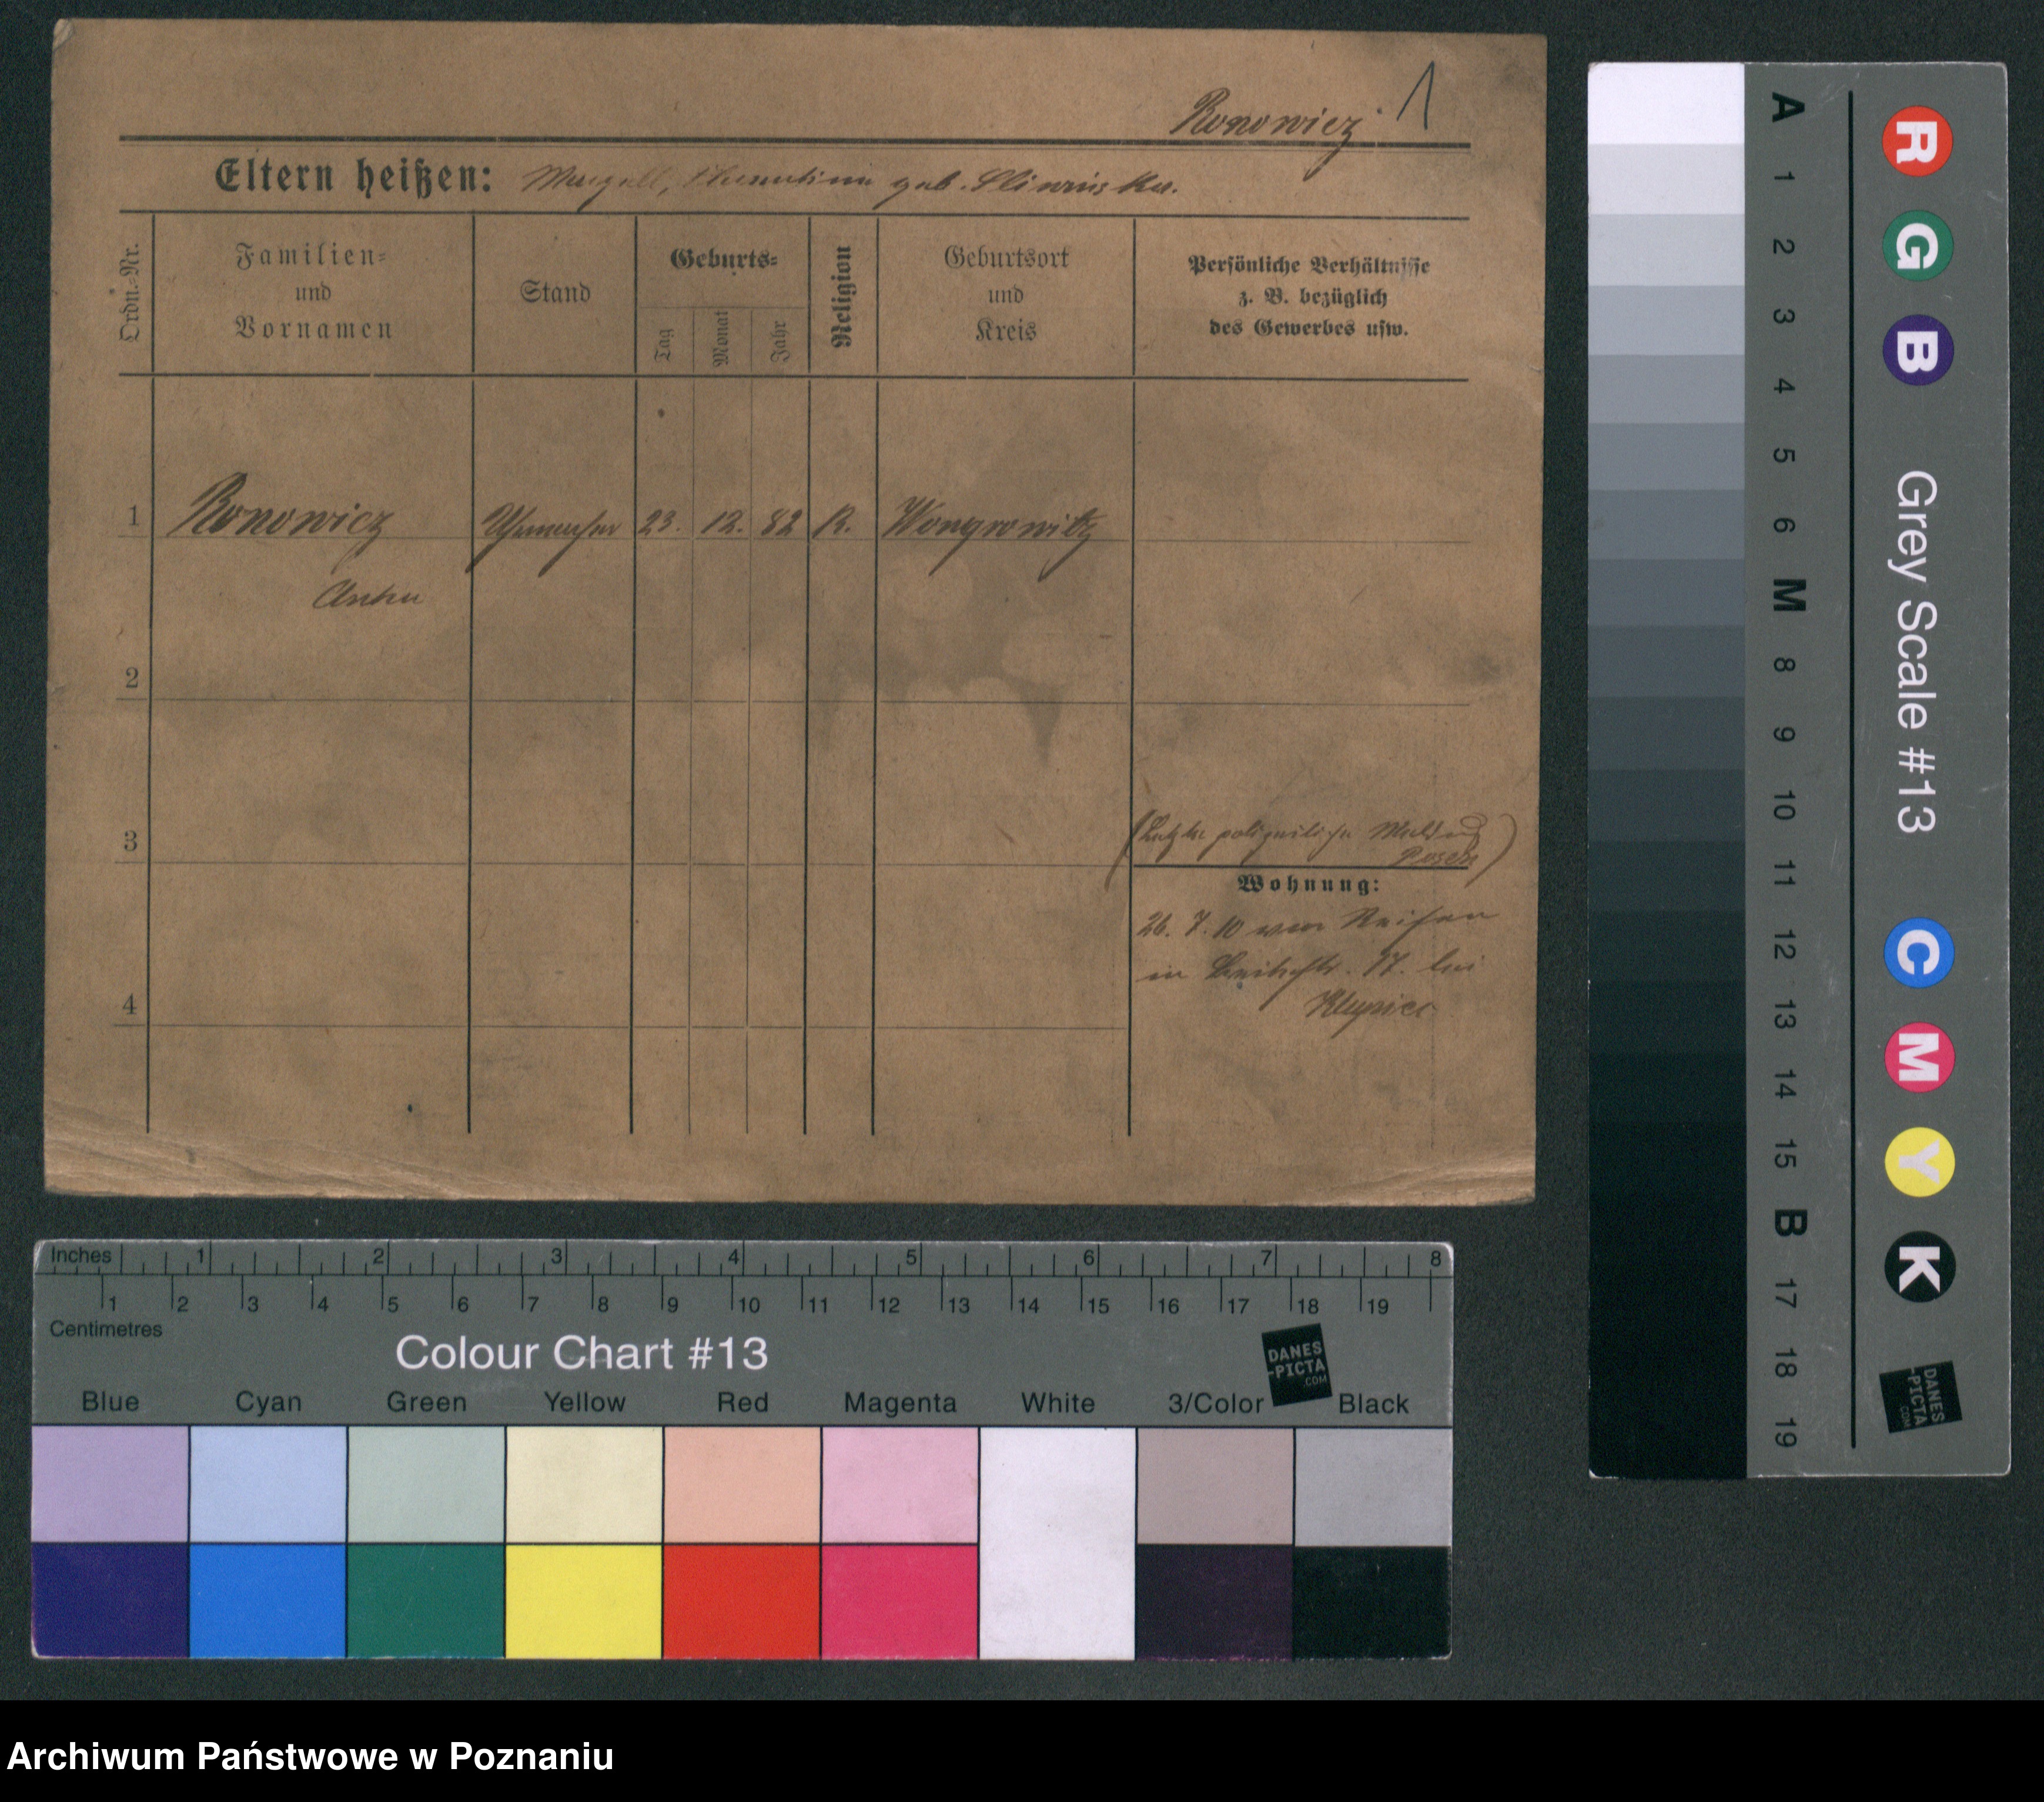 Ronowicz 1
Eltern heißen: geb. Sliwinska.
Ordn.-Nr.
Familien-
und
Vornamen
Stand
Geburts-
Tag
Monat
Jahr
Religion
Geburtsort
und
Kreis
Persönliche Verhältnisse
z. B. bezüglich
des Gewerbes usw.
1 Ronowicz 23. 12. 82 R. Wongrowitz
2
3
(Letzte polizeiliche Meldung
Posen)
Wohnung:
26. 7. 10 von Reisen
in 17. bei
4
A 1 2 3 4 5 6 M 8 9 10 11 12 13 14 15 B 17 18 19
R G B
Grey Scale #13
C M Y K
DANES
-PICTA
.COM
Inches 1 2 3 4 5 6 7 8
1 2 3 4 5 6 7 8 9 10 11 12 13 14 15 16 17 18 19
Centimetres
Colour Chart #13
DANES
-PICTA
.COM
Blue Cyan Green Yellow Red Magenta White 3/Color Black
Archiwum Państwowe w Poznaniu